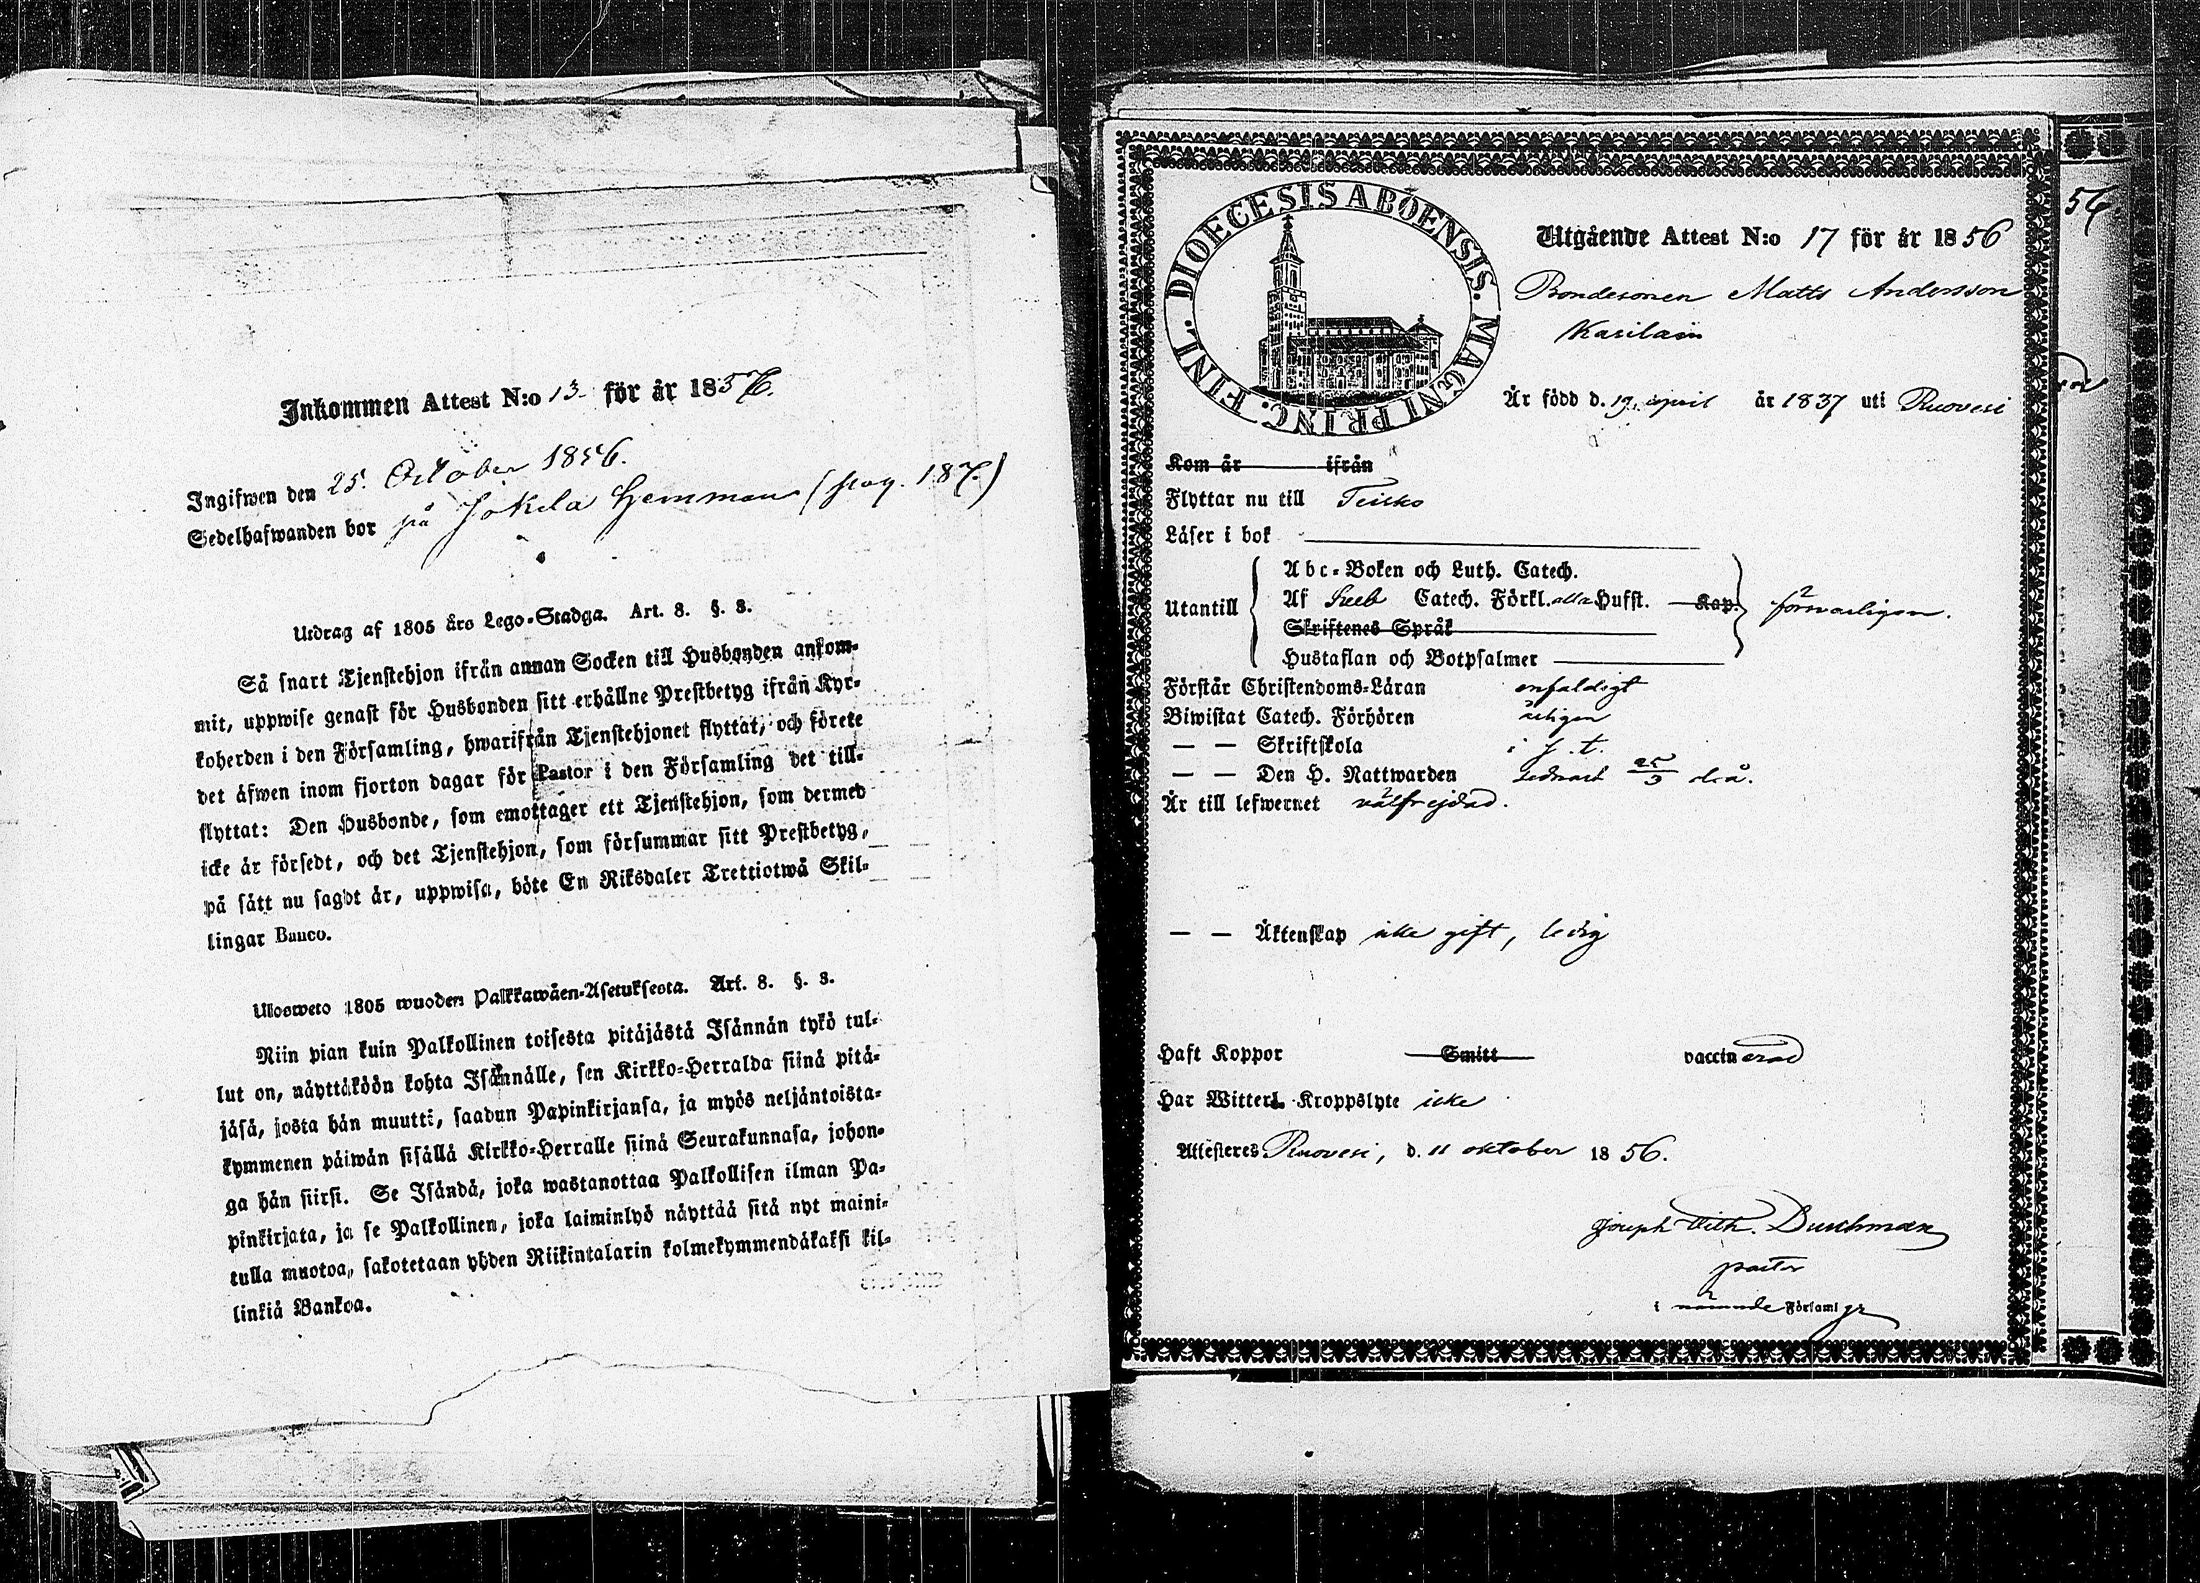 Inkommen Attest N:o 13 för år 1856.
Ingifwen den 25. October 1856.
Sedelhafwanden bor på Jokela hemman (pag. 187.)
Utdrag af 1805 års Lego-Stadga. Art. 8. §. 3.
Så snart Tjenstehjon ifrån annan Socken till Husbonden ankom-
mit, uppwise genast för Husbonden sitt erhållne Prestbetyg ifrån Kyr-
koherden i den Församling, hwarifrån Tjenstehjonet flyttat, och förete
det äfwen inom fjorton dagar för Pastor i den Församling det till-
flyttat: Den Husbonde, som emottager ett Tjenstehjon, som dermed
icke är försedt, och det Tjenstehjon, som försummar sitt Prestbetyg,
på sätt nu sagdt är, uppwisa, böte En Riksdaler Trettiotwå Skil-
lingar Banco.
Ulosweto 1805 wuoden Palkkawäen-Asetuksesta. Art. 8. §. 3.
Niin pian kuin Palkollinen toisesta pitäjästä Isännän tykö tul-
lut on, näyttäköön kohta Isännälle, sen Kirkko-Herralda siinä pitä-
jäsä, josta hän muutti, saadun Papinkirjansa, ja myös neljäntoista-
kymmenen päiwän sisällä Kirkko-Herralle siinä Seurakunnasa, johon-
ga hän siirsi. Se Isändä, joka wastanottaa Palkollisen ilman Pa-
pinkirjata, ja se Palkollinen, joka laiminlyö näyttää sitä nyt maini-
tulla muotoa, sakotetaan yhden Riikintalarin kolmekymmendäkaksi kil-
linkiä Bankoa.
DIOECESIS ABOENSIS. MAGNI PRINC. FINL.
Utgående Attest N:o 17 för år 1856
56.
Bondesonen Matts Andersson
Karilain
Är född d. 19 april år 1837 uti Ruovesi
Kom år ifrån
Flyttar nu till Teisko
Läser i bok
Utantill
Abc-Boken och Luth. Catech.
Af Sveb Catech. Förkl. alla Hufst. Kap.
försvarligen.
Skriftenes Språk
Hustaflan och Botpsalmer
Förstår Christendoms-Läran enfaldigt
Biwistat Catech. Förhören årligen
— — Skriftskola i s. t.
— — Den H. Nattwarden sednast 25/5 d. å.
Är till lefwernet välfrejdad.
— — Äktenskap icke gift, ledig
Haft Koppor Smitt vaccinerad
Har Witterl. Kroppslyte icke
Attesteres Ruovesi, d. 11 oktober 1856.
Joseph Wilh. Durchman
pastor
i nämnde Församl gr